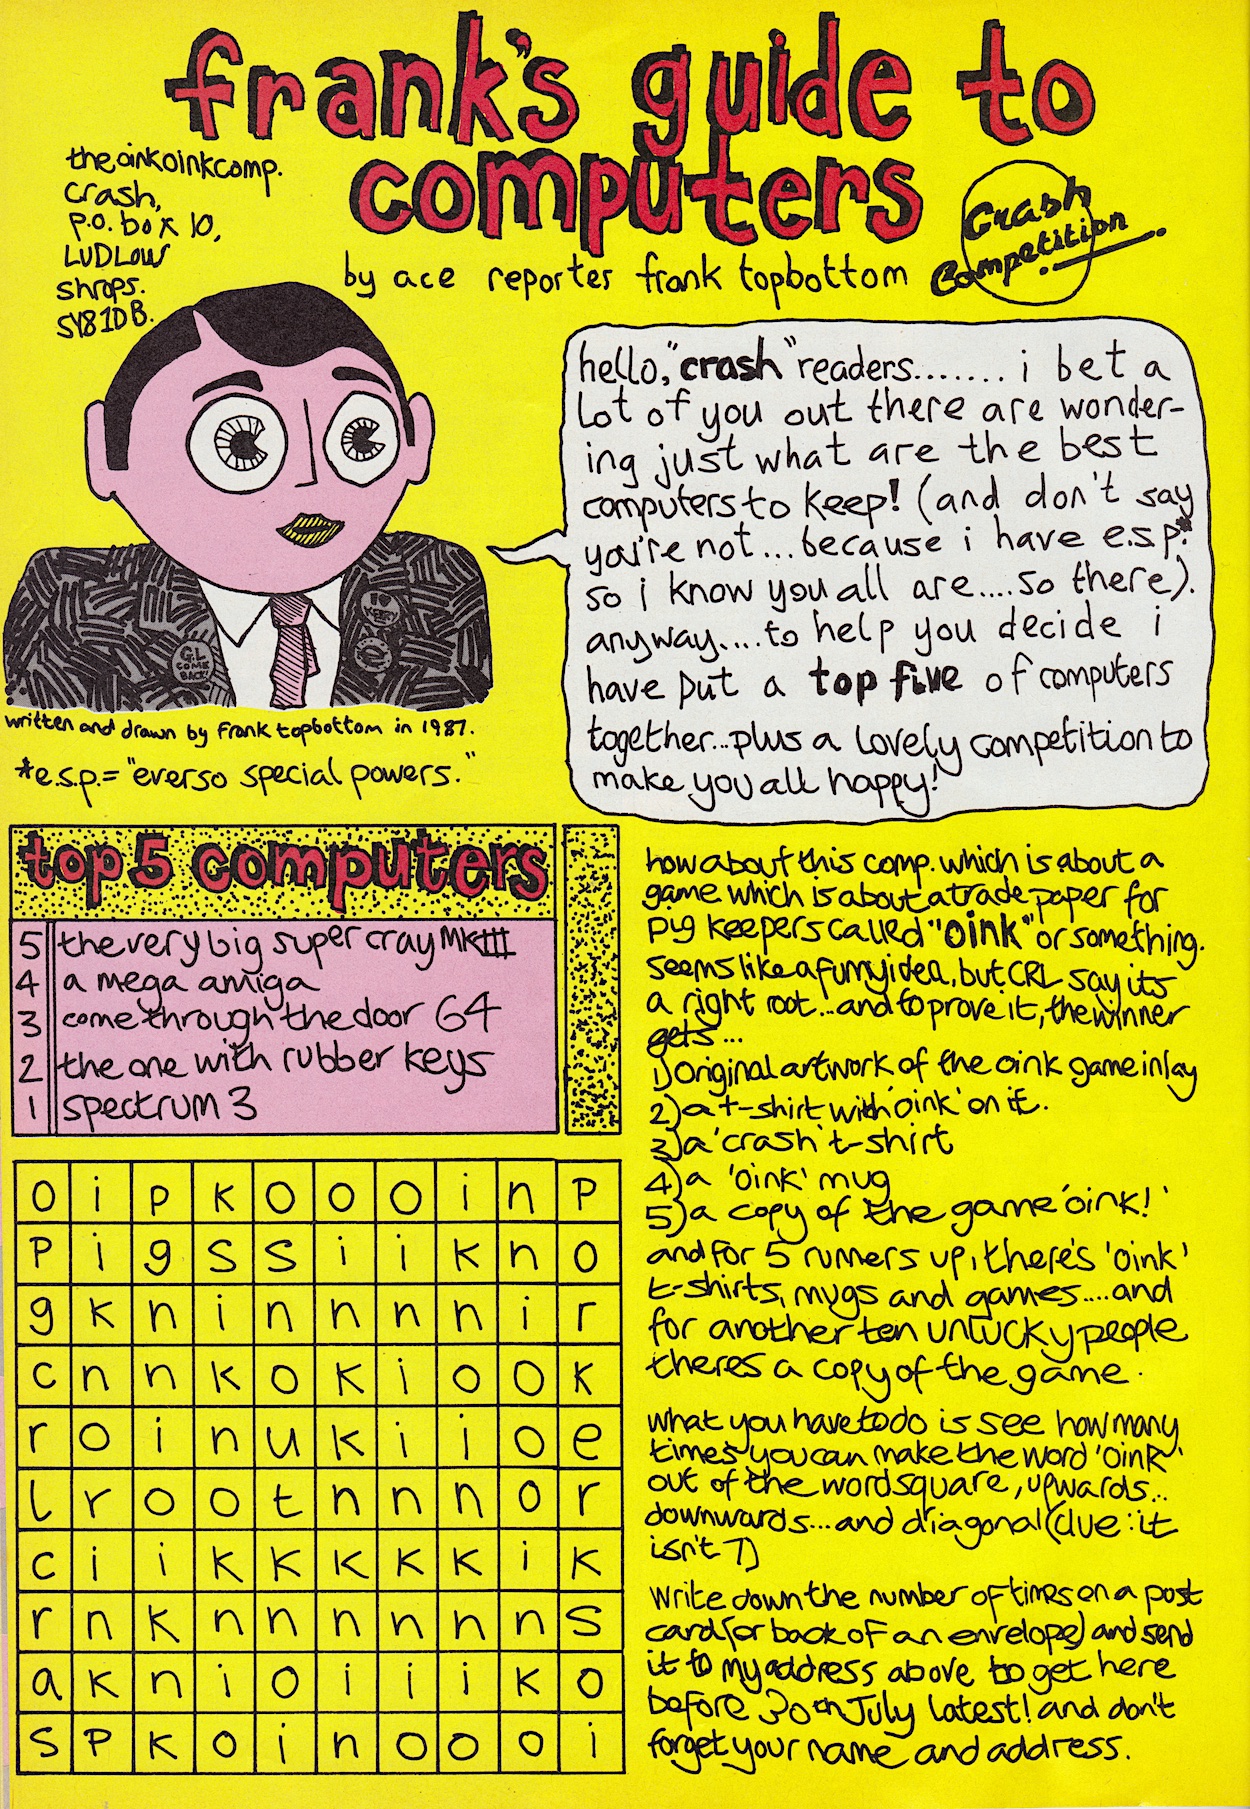 frank's guide to
computers
the oink oink comp.
crash,
p.o. box 10,
LUDLOW
shrops.
SY8 1DB.
by ace reporter frank topbottom
Crash
Competition
hello, "crash" readers....... i bet a
lot of you out there are wonder-
ing just what are the best
computers to keep! (and don't say
you're not...because i have e.s.p.*
so i know you all are....so there).
anyway....to help you decide i
have put a top five of computers
together...plus a lovely competition to
make you all happy!
G.L
COME
BACK!
written and drawn by frank topbottom in 1987.
*e.s.p.= "ever so special powers."
top 5 computers
5 the very big super cray MKIII
4 a mega amiga
3 come through the door 64
2 the one with rubber keys
1 spectrum 3
o i p k o o o i n p
p i g s s i i k n o
g k n i n n n n i r
c n n k o k i o o k
r o i n u k i i o e
l r o o t n n n o r
c i i k k k k k i k
r n k n n n n n n s
a k n i o i i i k o
s p k o i n o o o i
how about this comp. which is about a
game which is about a trade paper for
pig keepers called "oink" or something.
seems like a funny idea, but CRL say its
a right root...and to prove it, the winner
gets...
1) original artwork of the oink game inlay
2) a t-shirt with 'oink' on it.
3) a 'crash' t-shirt
4) a 'oink' mug
5) a copy of the game 'oink!'
and for 5 runners up, there's 'oink'
t-shirts, mugs and games....and
for another ten unlucky people
theres a copy of the game.
what you have to do is see how many
times you can make the word 'oink'
out of the wordsquare, upwards...
downwards...and diagonal (clue: it
isn't 7)
write down the number of times on a post
card (or back of an envelope) and send
it to my address above to get here
before 30th July latest! and don't
forget your name and address.